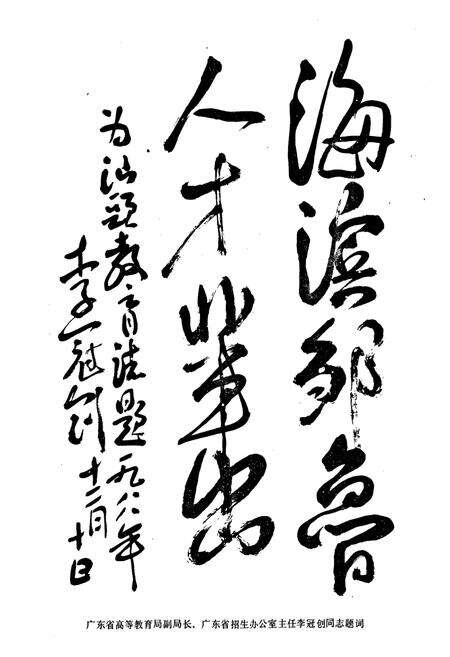 海滨邹鲁
人才辈出
为汕頭教育誌题一九八八年
李冠创十二月十日
广东省高等教育局副局长、广东省招生办公室主任李冠创同志题词